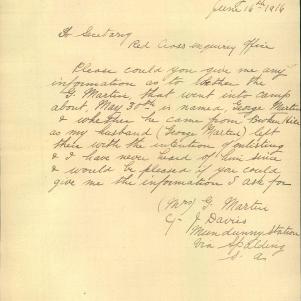 June 16th 1916
To Secretary
Red Cross enquiry Office
Please could you give me any
information as to wether the
G. Martin that went into camp
about, May 30th is named George Martin
& whether he came from Broken Hill
as my husband (George Martin) left
there with the intention of enlisting
& I have never heard of him since
& would be pleased if you could
give me the information I ask for
(Mrs) G. Martin
C/- J Davies
Mundunny Station
Via Spalding
S. A.